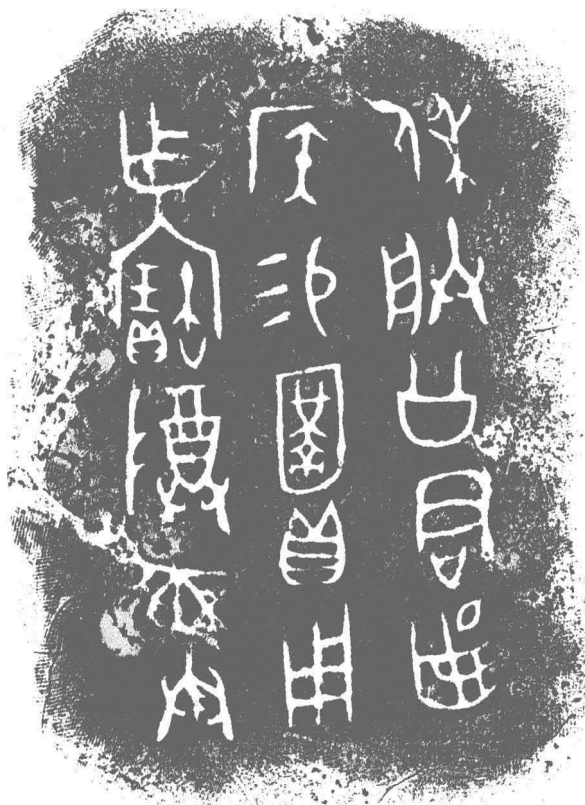 休朕公君匽
侯易圉貝用
乍寶尊彝